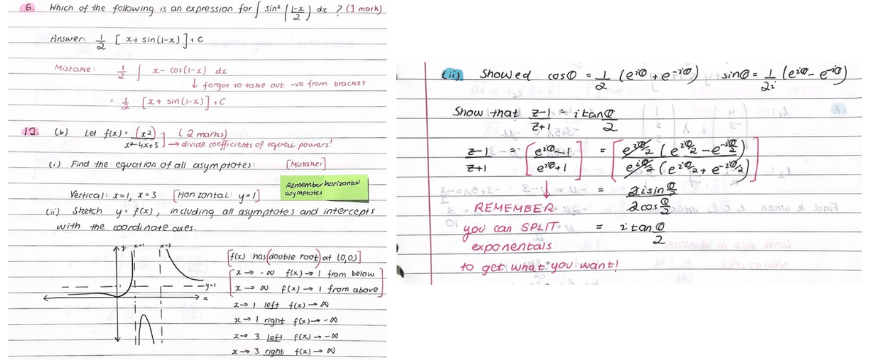 6. Which of the following is an expression for ∫ sin² (1-x/2) dx ? (1 mark)
Answer: 1/2 [x + sin(1-x)] + C
Mistake: 1/2 ∫ x - cos(1-x) dx
↓ forgot to take out -ve from bracket
= 1/2 [x + sin(1-x)] + C
12. (b) Let f(x) = (x²)/x²-4x+3 (2 marks)
→ divide coefficients of equal powers!
(i) Find the equation of all asymptotes: [Mistake]
Vertical: x=1, x=3 [Horizontal: y=1]
Remember horizontal
asymptotes
(ii) Sketch y = f(x), including all asymptotes and intercepts
with the coordinate axes.
y x=1 x=3
y=1
x
[f(x) has (double root) at (0,0)]
x → -∞ f(x) → 1 from below
x → ∞ f(x) → 1 from above
x → 1 left f(x) → ∞
x → 1 right f(x) → -∞
x → 3 left f(x) → -∞
x → 3 right f(x) → ∞
(ii) Showed cosθ = 1/2 (e^iθ + e^-iθ) sinθ = 1/2i (e^iθ - e^-iθ)
Show that z-1/z+1 = i tan θ/2
z-1/z+1 = [e^iθ-1/e^iθ+1] = [e^iθ/2 (e^iθ/2 - e^-iθ/2)/e^iθ/2 (e^iθ/2 + e^-iθ/2)]
= 2i sin θ/2 / 2cos θ/2
- REMEMBER -
you can SPLIT
= i tan θ/2
exponentials
to get what you want!